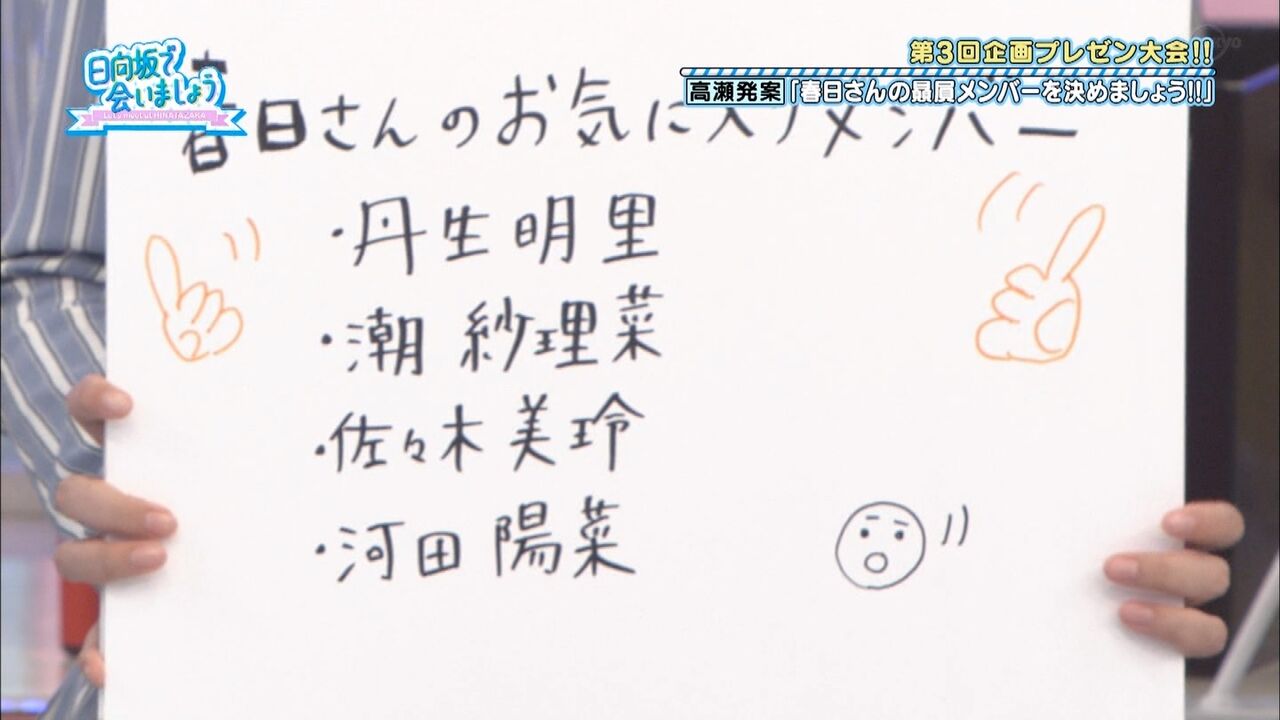 日向坂で
会いましょう
Let's meet at HINATAZAKA
第3回企画プレゼン大会!!
高瀬発案「春日さんの贔屓メンバーを決めましょう!!」
春日さんのお気に入りメンバー
・丹生明里
・潮 紗理菜
・佐々木美玲
・河田陽菜